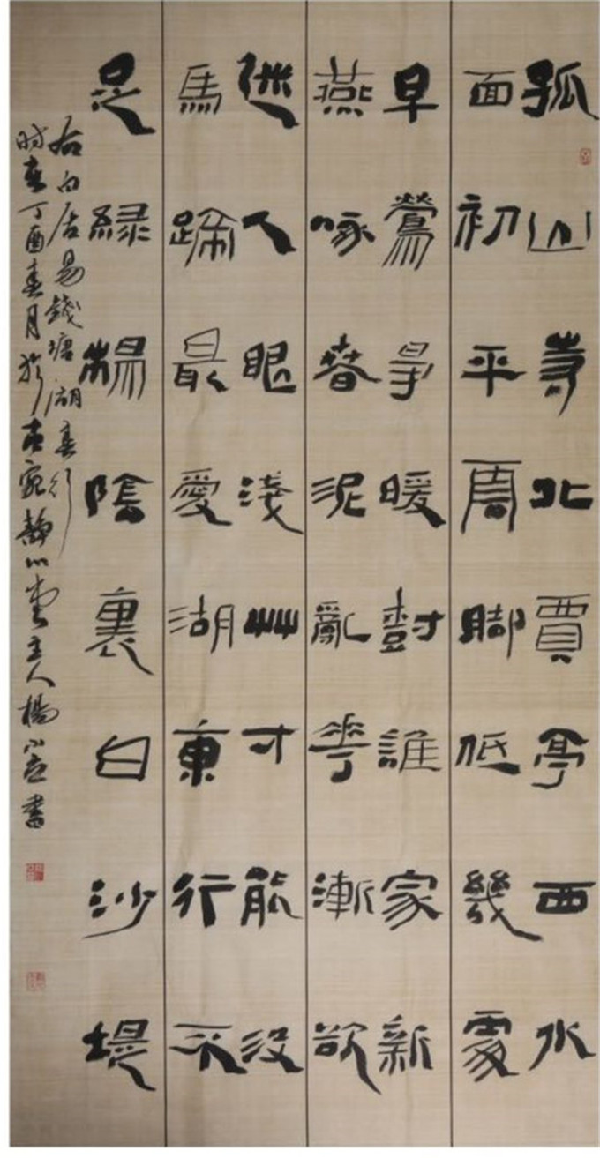 孤山寺北賈亭西水
面初平周脚低幾處
早鶯爭暖樹誰家新
燕啄春泥亂花漸欲
迷人眼淺艸才能没
馬蹄最愛湖東行不
足綠楊陰裏白沙堤
右白居易錢塘湖春行
時在丁酉春月於古宛静心堂主人楊書